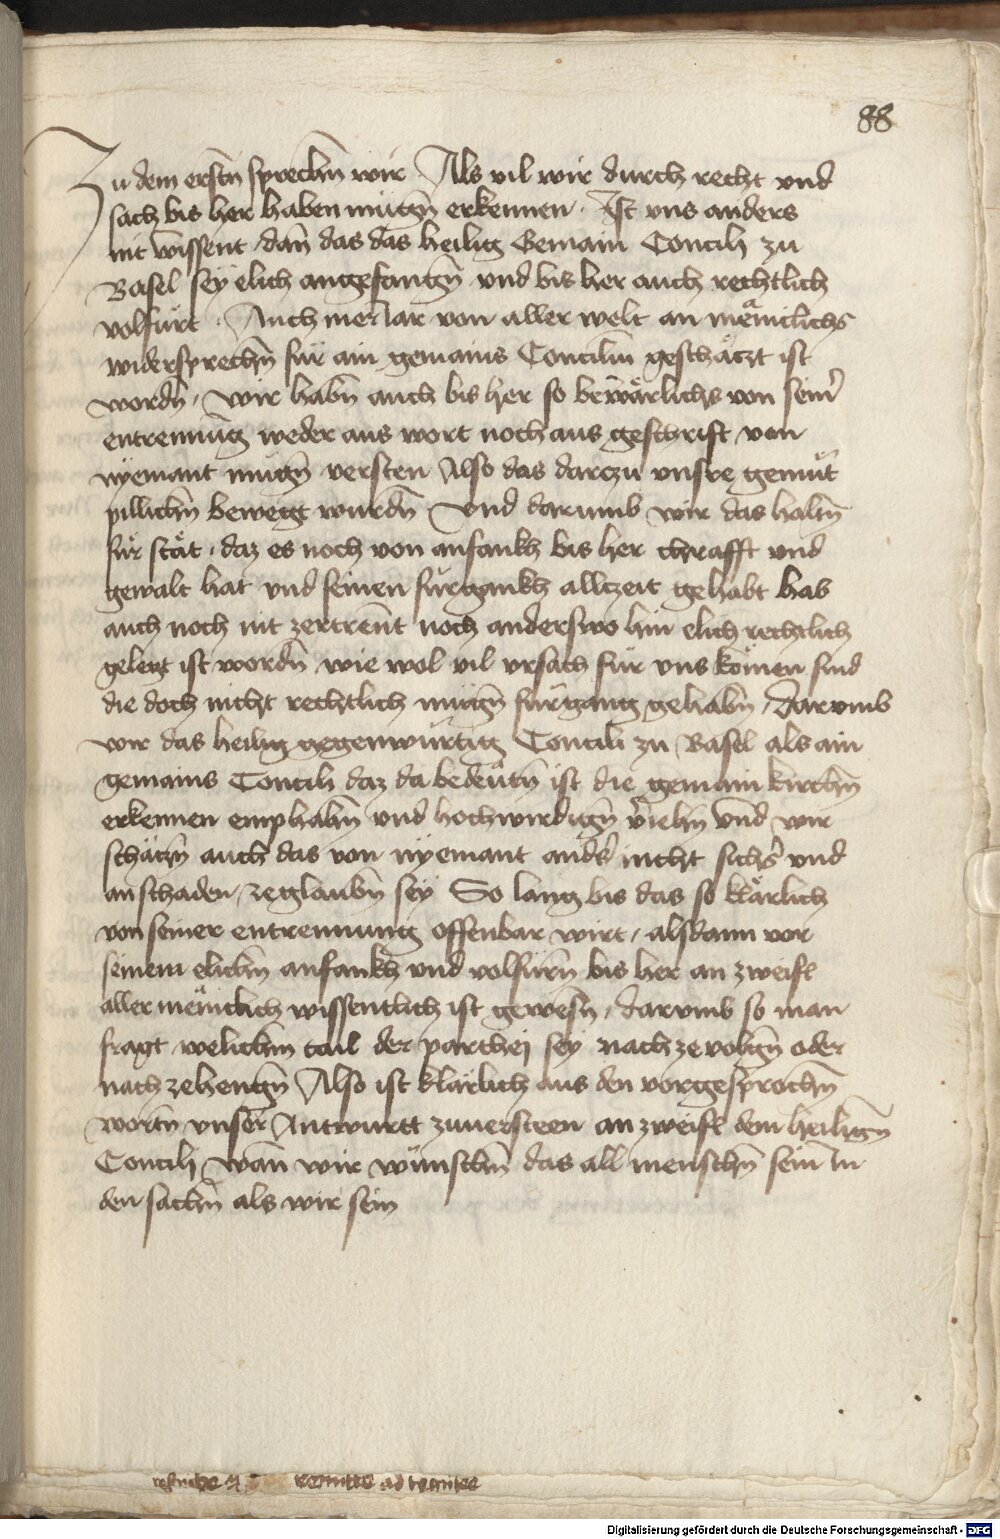 88
Zu dem erstn sprechn wir Als vil wir durch recht vnd
sach bis her haben mügn erkennen · Ist vns anders
nit wissent dan das das heilig Gemain Concilj zu
Basel sey elich angefangn vnd bis her auch rechtlich
volfürt · Auch me dar von aller welt an mäniclichs
widersprechn für ain gemains Conciliu geschätzt ist
wordn, wir habn auch bis her so bewärlichs von seinr
entrennug weder aus wort noch aus geschrift von
nyemant mügn versten Also das darczu vnsre gemüt
pillichn bewegt wurdn Vnd darumb wir das haltn
für stät · daz es noch von anfankh bis her chrafft vnd
gewalt hat vnd seinen fürgankh allczeit gehabt hab
auch noch nit zertrent noch anderswo hin elich rechtlich
gelegt ist wordn wie wol vil vrsach für vns kömen sind
die doch nicht rechtlich mügn fürgang gehabn, Darumb
wir das heilig gegenwürtig Concili zu Basel als ain
gemains Concilj daz da bedeütn ist die gemain kirchn
erkennen emphahn vnd hochwirdign vnd wir
schätzn auch das von nyemant anders nicht sichrs vnd
an schaden zeglaubn sey So lang bis das so klärlich
von seiner entrennung offenbar wirt, alsdann vor
seinem elichn anfankh vnd volfürn bis her an zweifl
aller mäniclich wissentlich ist gewesn, darumb so man
fragt welichm tail der parthej sey nach ze volgn oder
nach ze hengn Also ist klärlich aus den vorgesprochn
wortn vnser Antwurtt zuuersteen an zweifl dem heilign
Concilj wan wir wünschn das all menschn sein in
den sachn als wir sein
remittes ad
Digitalisierung gefördert durch die Deutsche Forschungsgemeinschaft - DFG